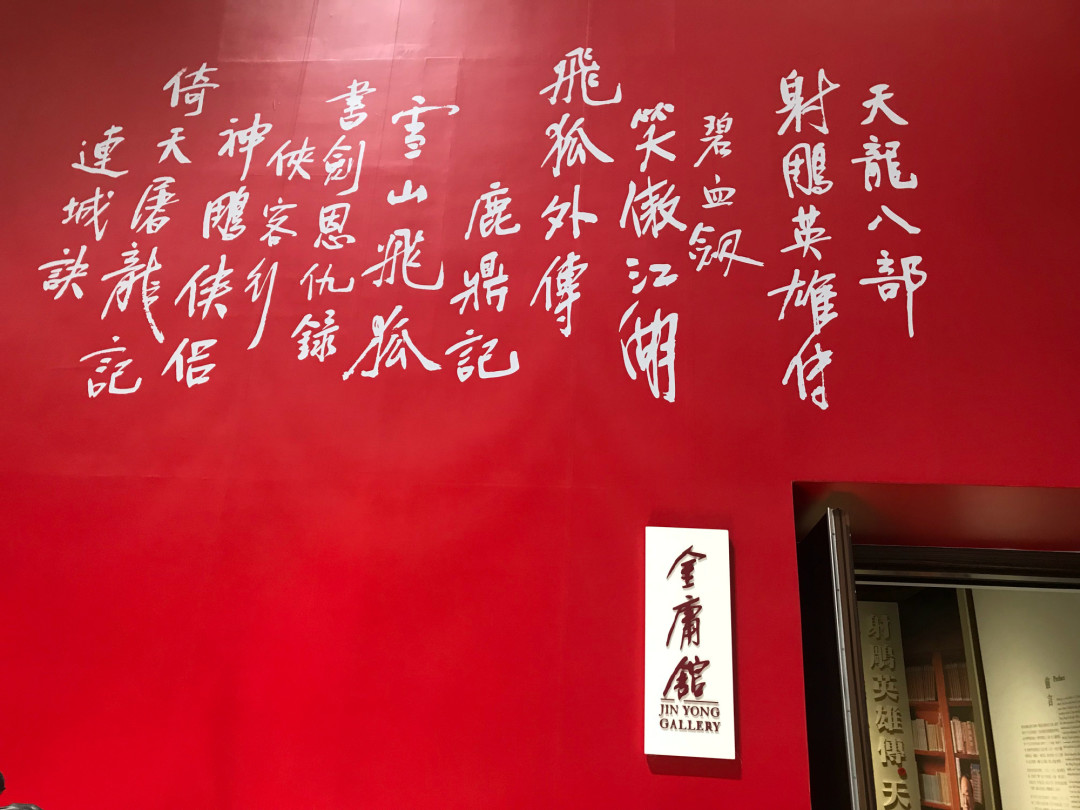 天龍八部
射鵰英雄傳
碧血劍
笑傲江湖
飛狐外傳
鹿鼎記
雪山飛狐
書劍恩仇録
俠客行
神鵰俠侶
倚天屠龍記
連城訣
金庸館
JIN YONG
GALLERY
射鵰英雄傳·天
前言
Preface